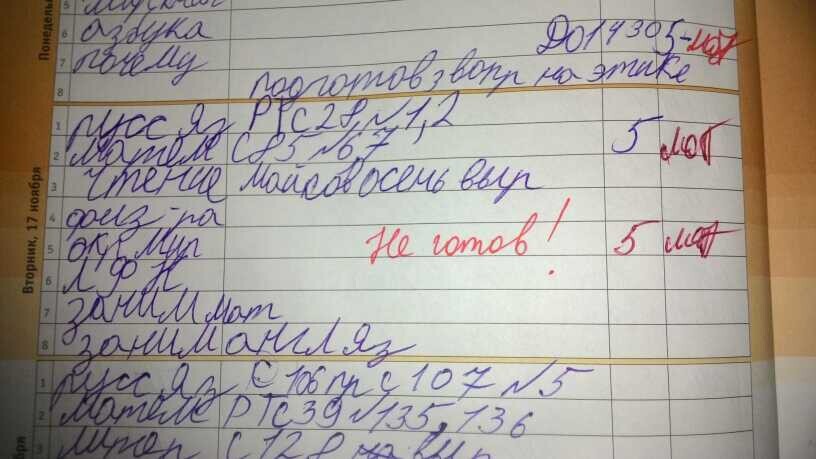 Понедель
5
6 азбука До 14 30 5- мот
7 почему
8 подготов 3 вопр на этике
Вторник, 17 ноября
1 русс яз РТ с 28, №1,2
2 матем С 85 №6,7 5 мот
3 чтение Майков осень выр
4 физ-ра
5 окр мир Не готов! 5 мот
6 Л Ф К
7 заним мат
8 заним англ яз
1 русс яз С 106 пр с 107 №5
2 матем РТ с 39 №135, 136
3 литер с 128 выр
бря